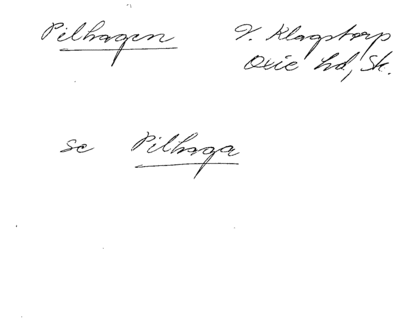 Pilhagen
V. Klagstorp
Oxie hd, Sk.
se Pilhaga